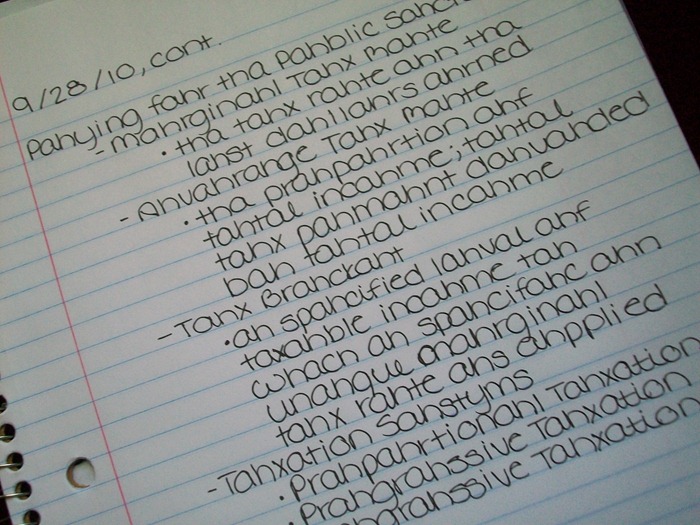 9/28/10, cont.
Pahying fahr tha Pahblic Sahc
- mahrginahl Tahx Rahte
• tha tahx rahte ahn tha
lahst dahllahrs ahrned
- Ahvahrange Tahx Rahte
• tha prahpahrtion ahf
tahtal incahme; tahtal
tahx pahmahnt dahvahded
bah tahtal incahme
- Tahx Branckaht
• ah spahcified lahval ahf
taxahble incahme tah
whach ah spahcifahc ahn
unahque mahrginahl
tahx rahte ahs ahpplied
- Tahxation Sahstyms
• Prahpahrtionahl Tahxation
• Prahgrahssive Tahxation
ahgrahssive Tahxation